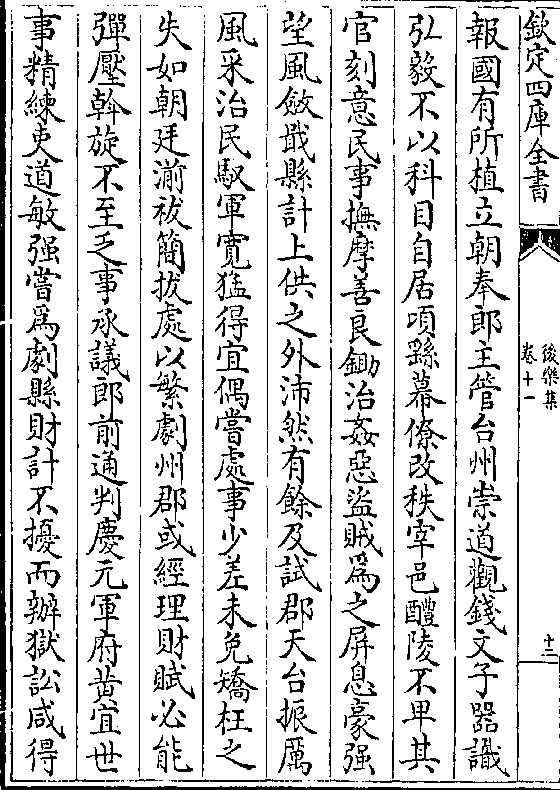 欽定四庫全書
後樂集
卷十一
十二
報國有所植立朝奉郎主管台州崇道觀錢文子器識
弘毅不以科目自居頃繇幕僚改秩宰邑醴陵不卑其
官刻意民事撫摩善良鋤治姦惡盜賊爲之屏息豪强
望風斂戢縣計上供之外沛然有餘及試郡天台振厲
風采治民馭軍寛猛得宜偶嘗處事少差未免矯枉之
失如朝廷湔祓簡拔處以繁劇州郡或經理財賦必能
彈壓斡旋不至乏事承議郎前通判慶元軍府黄宜世
事精練吏道敏强嘗爲劇縣財計不擾而辦獄訟咸得